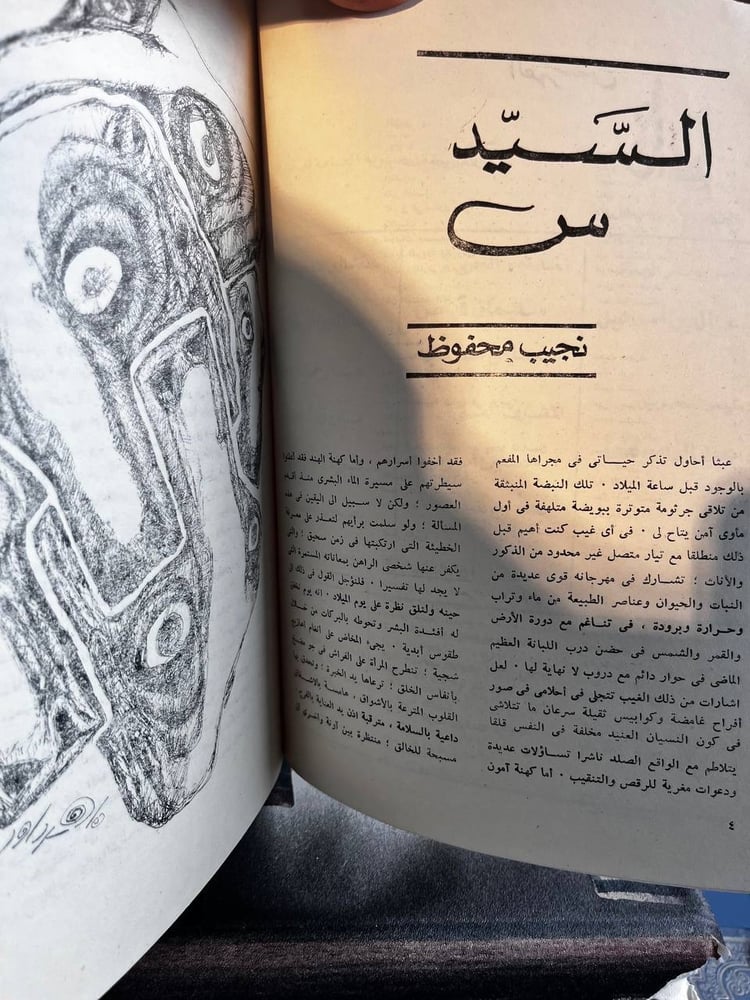 السَّيّد
س
نجيب محفوظ
عبثا أحاول تذكر حيــاتى فى مجراها المفعم
بالوجود قبل ساعة الميلاد . تلك النبضة المنبثقة
من تلاقى جرثومة متوترة ببويضة متلهفة فى أول
مأوى آمن يتاح لى . فى أى غيب كنت أهيم قبل
ذلك منطلقا مع تيار متصل غير محدود من الذكور
والأناث ؛ تشــارك فى مهرجانه قوى عديدة من
النبات والحيوان وعناصر الطبيعة من ماء وتراب
وحـرارة وبرودة ، فى تنـاغم مع دورة الأرض
والقمر والشمس فى حضن درب اللبانة العظيم
الماضى فى حوار دائم مع دروب لا نهاية لها . لعل
اشارات من ذلك الغيب تتجلى فى أحلامى فى صور
أفراح غامضة وكوابيس ثقيلة سرعان ما تتلاشى
فى كون النسيان العنيد مخلفة فى النفس قلقا
يتلاطم مع الواقع الصلد ناشرا تســاؤلات عديدة
ودعوات مغرية للرقص والتنقيب . أما كهنة آمون
فقد أخفوا أسرارهم ، وأما كهنة الهند فقد أعلنوا
سيطرتهم على مسيرة الماء البشرى منذ أقدم
العصور ؛ ولكن لا سبيل الى اليقين فى هذه
المسألة ؛ ولو سلمت برأيهم لتعذر على معرفة
الخطيئة التى ارتكبتها فى زمن سحيق ؛ والتى
يكفر عنها شخصى الراهن بمعاناته المستمرة التى
لا يجد لها تفسيرا . فلنؤجل القول فى ذلك الى
حينه ولنلق نظرة على يوم الميلاد . انه يوم تخفق
له أفئدة البشر وتحوطه بالبركات من خلال
طقوس أبدية . يجىء المخاض على أنغام أهازيج
شجية ؛ تنطرح المرأة على الفراش فى جو مفعم
بأنفاس الخلق ؛ ترعاها يد الخبرة ؛ وتحدق بها
القلوب المترعة بالأشواق ، هامسة بالأشفاق
داعية بالسلامة ، مترقبة اذن يد العناية بالفرج
مسبحة للخالق ؛ منتظرة بين آونة وأخرى أن
٤